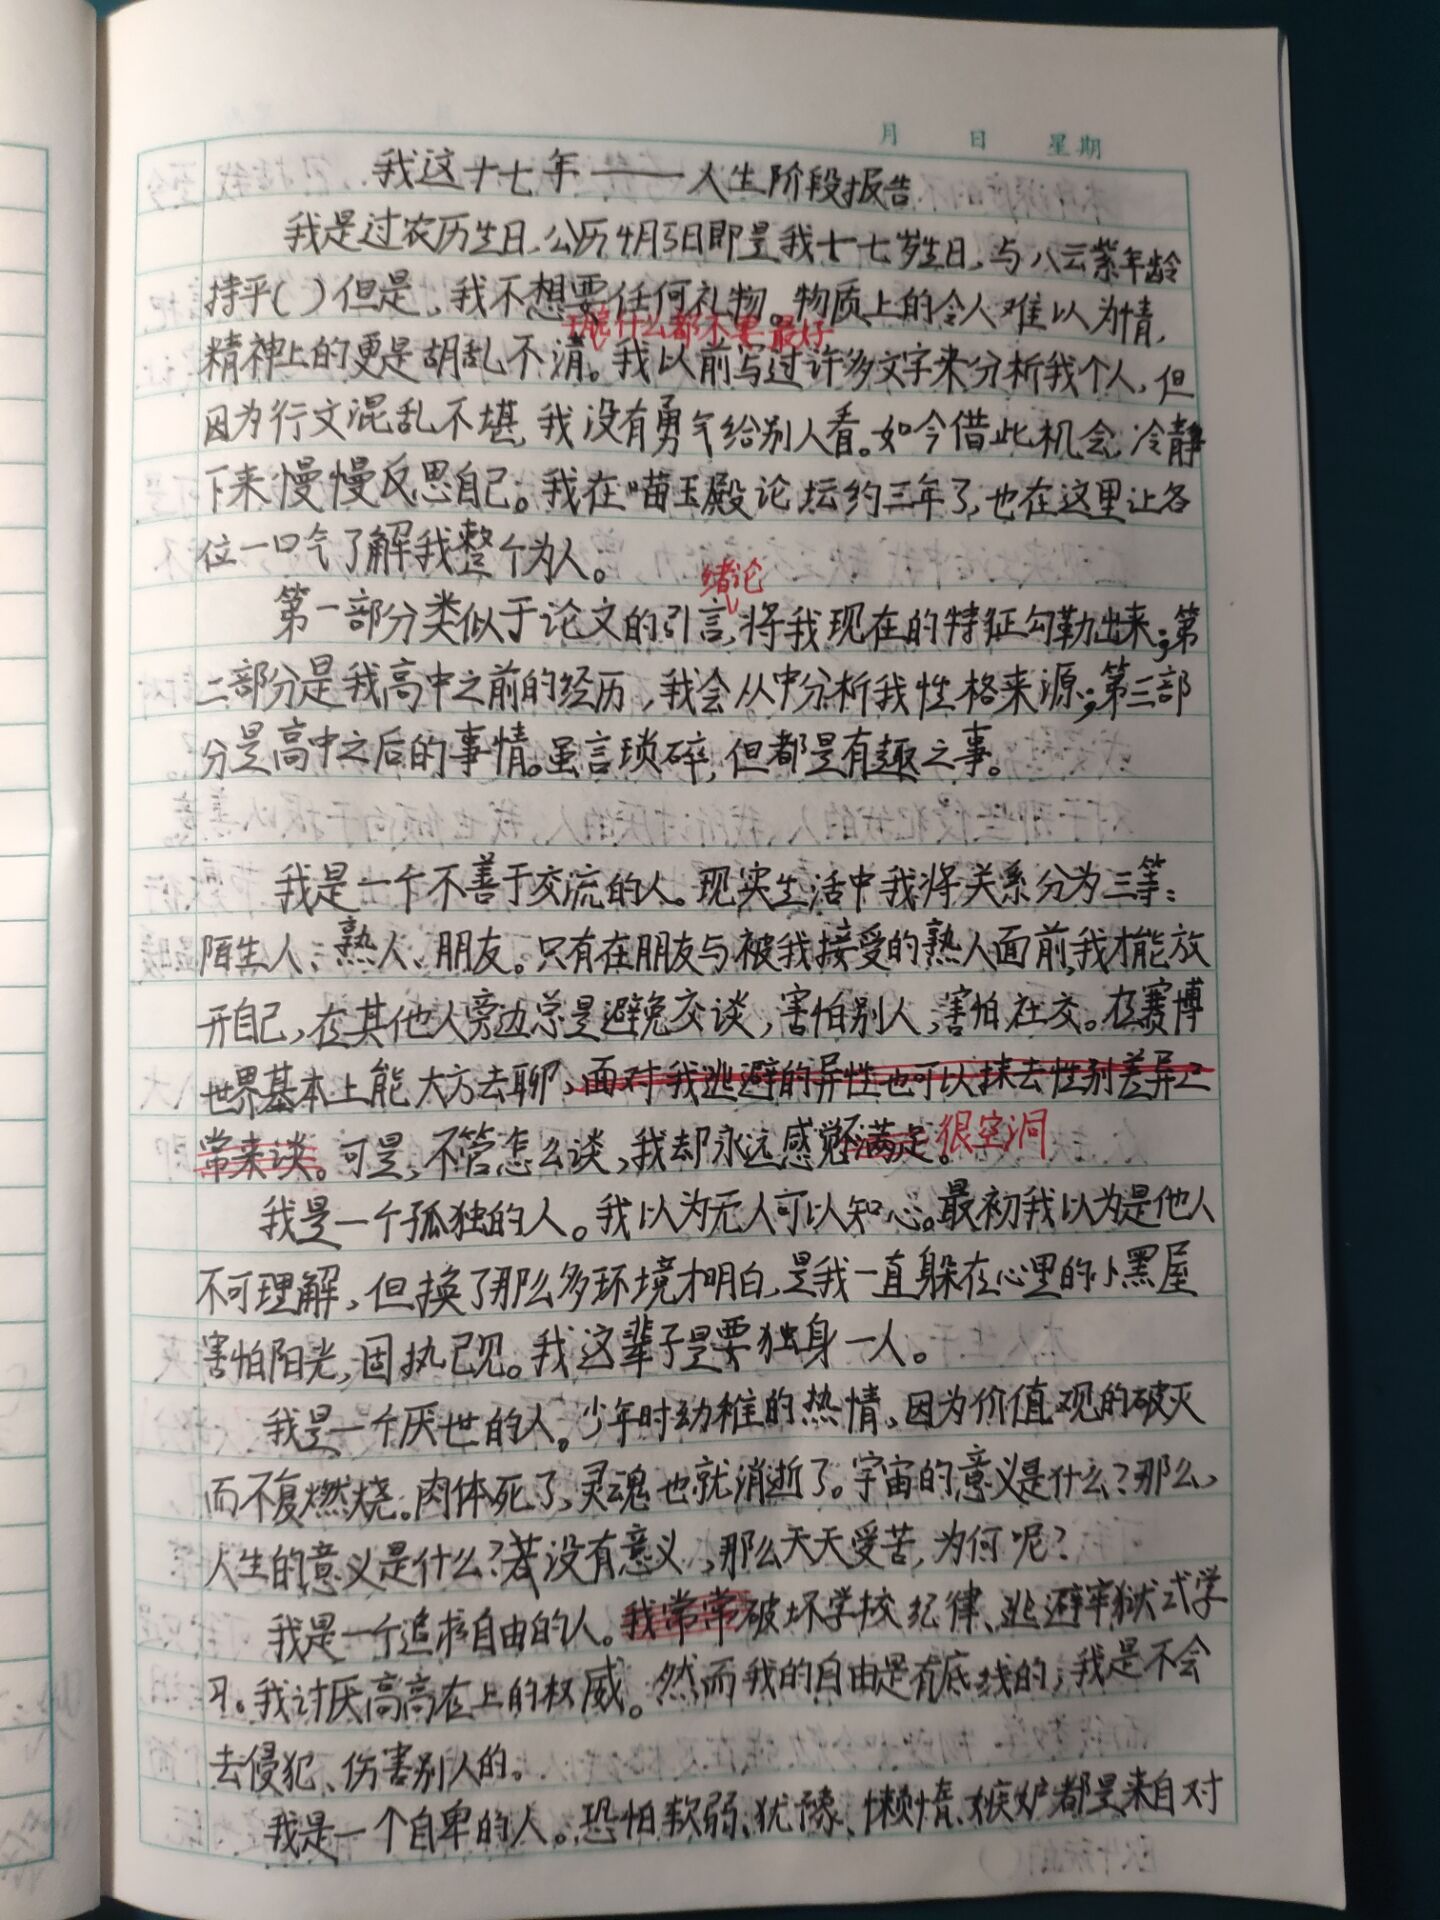 月 日 星期
我这十七年——人生阶段报告
我是过农历生日,公历4月5日即是我十七岁生日,与八云紫年龄
持平()但是,我不想要任何礼物。物质上的令人难以为情,
能什么都不要最好
精神上的更是胡乱不清。我以前写过许多文字来分析我个人,但
因为行文混乱不堪,我没有勇气给别人看。如今借此机会,冷静
下来慢慢反思自己。我在喵玉殿论坛约三年了,也在这里让各
位一口气了解我整个为人。
绪论
第一部分类似于论文的引言,将我现在的特征勾勒出来;第
二部分是我高中之前的经历,我会从中分析我性格来源;第三部
分是高中之后的事情。虽言琐碎,但都是有趣之事。
我是一个不善于交流的人。现实生活中我将关系分为三等:
陌生人、熟人、朋友。只有在朋友与被我接受的熟人面前,我才能放
开自己,在其他人旁边总是避免交谈,害怕别人,害怕社交。在赛博
世界基本上能大方去聊,面对我逃避的异性也可以抹去性别差异之
常来谈。可是,不管怎么谈,我却永远感觉不满足。很空洞
我是一个孤独的人。我以为无人可以知心。最初我以为是他人
不可理解,但换了那么多环境才明白,是我一直躲在心里的小黑屋
害怕阳光,固执己见。我这辈子是要独身一人。
我是一个厌世的人。少年时幼稚的热情,因为价值观的破灭
而不复燃烧。肉体死了,灵魂也就消逝了。宇宙的意义是什么?那么,
人生的意义是什么?若没有意义,那么天天受苦,为何呢?
我是一个追求自由的人。我常常破坏学校纪律、逃避牢狱式学
习。我讨厌高高在上的权威。然而我的自由是有底线的,我是不会
去侵犯、伤害别人的。
我是一个自卑的人。恐怕软弱、犹豫、懒惰、嫉妒都是来自对